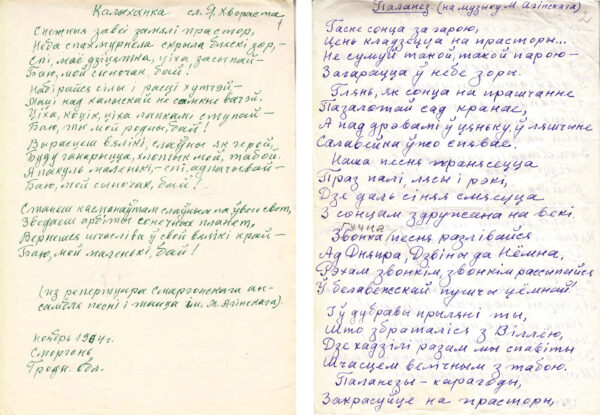 Калыханка сл. Я. Хвораста
1
Снежныя завеі замялі прастор,
Неба спахмурнела скрыла бляскі зор,—
Спі, маё дзіцятка, ціха засыпай—
Баю, мой сыночак, бай!
Набірайся сілы і расці хутчэй—
Маці над калыскай не самкне вачэй.
Ціха, коцік, ціха лапкамі ступай—
Баю, ты мой родны, бай!
Вырасцеш вялікі, слаўны як герой,
Буду ганарыцца, хлопчык мой, табой.
А пакуль маленькі,— спі, адпачывай—
Баю, мой сыночак, бай!
Станеш каспанаўтам слаўных на ўвесь свет,
Зведаеш арбіты сонечных планет,
Вернешся шчасліва ў свой вялікі край—
Баю, мой маленькі, бай!
(из репертуара Сморгонского ан-
самбля песні і танца им. М. Агінскага).
ноябрь 1964г.
Сморгонь
Гродн. обл.
Паланез (на музыку М. Агінскага)
2
Гасне сонца за гарою,
Цень кладзецца на прасторы...
Не сумуй таной, такой парою—
Загарацца ў небе зоры.
Глянь, як сонца на прашчанне
Пазалотай сад кранае,
А над дрэвамі ў цяньку, ў ляшчыне
Салавейка ўжо спявае.
Наша песня пранясецца
Праз палі, лясы і рэкі,
Дзе даль сіняя смяецца
З сонцам здружана на векі.
Гучна
Звонка песня разлівайся
Ад Дняпра, Дзвіны да Нёмна,
Рэхам звонкім, звонкім рассыпайся
Ў белавежскай пушчы цёмнай!
І ў дубравы прыляні ты,
Што збраталіся з Віллёю,
Дзе хадзілі разам мы спавіты
Шчасцем вечным з табою.
Паланезы – карагоды,
Закрасуйце на прасторы,